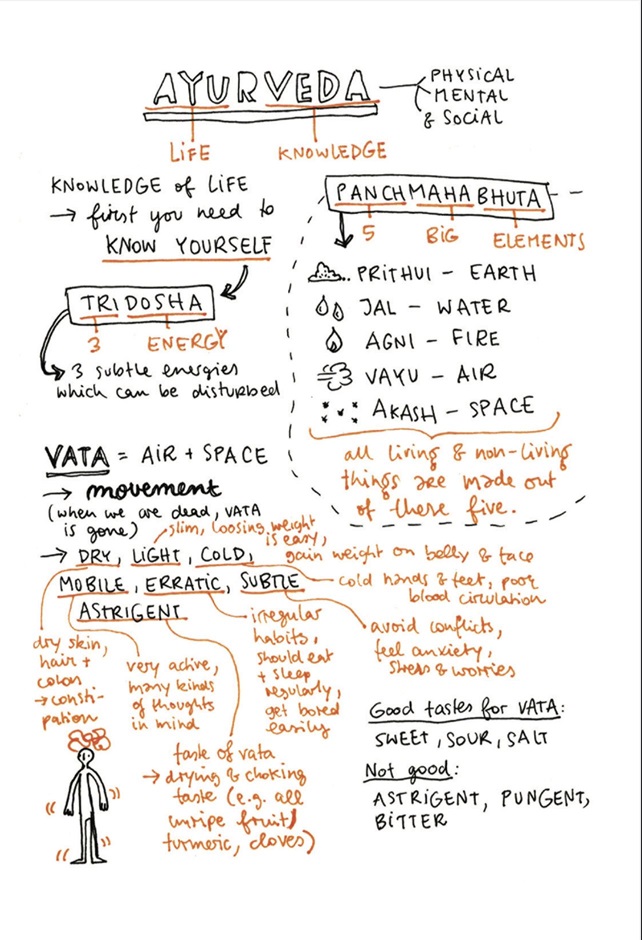 AYURVEDA
PHYSICAL
MENTAL
& SOCIAL
LIFE KNOWLEDGE
KNOWLEDGE of LIFE
→ first you need to
KNOW YOURSELF
TRIDOSHA
3 ENERGY
→ 3 subtle energies
which can be disturbed
PANCHMAHABHUTA
5 BIG ELEMENTS
PRITHUI – EARTH
JAL – WATER
AGNI – FIRE
VAYU – AIR
AKASH – SPACE
all living & non-living
things are made out
of these five.
VATA = AIR + SPACE
→ movement
(when we are dead, VATA
is gone)
slim, loosing weight
is easy,
gain weight on belly & face
→ DRY, LIGHT, COLD,
MOBILE, ERRATIC, SUBTLE
ASTRIGENT
cold hands & feet, poor
blood circulation
dry skin,
hair +
colon
→ consti-
pation
very active,
many kinds
of thoughts
in mind
irregular
habits,
should eat
+ sleep
regularly,
get bored
easily
avoid conflicts,
feel anxiety,
stress & worries
taste of vata
→ drying & choking
taste (e.g. all
unripe fruit,
turmeric, cloves)
Good tastes for VATA:
SWEET, SOUR, SALT
Not good:
ASTRIGENT, PUNGENT,
BITTER